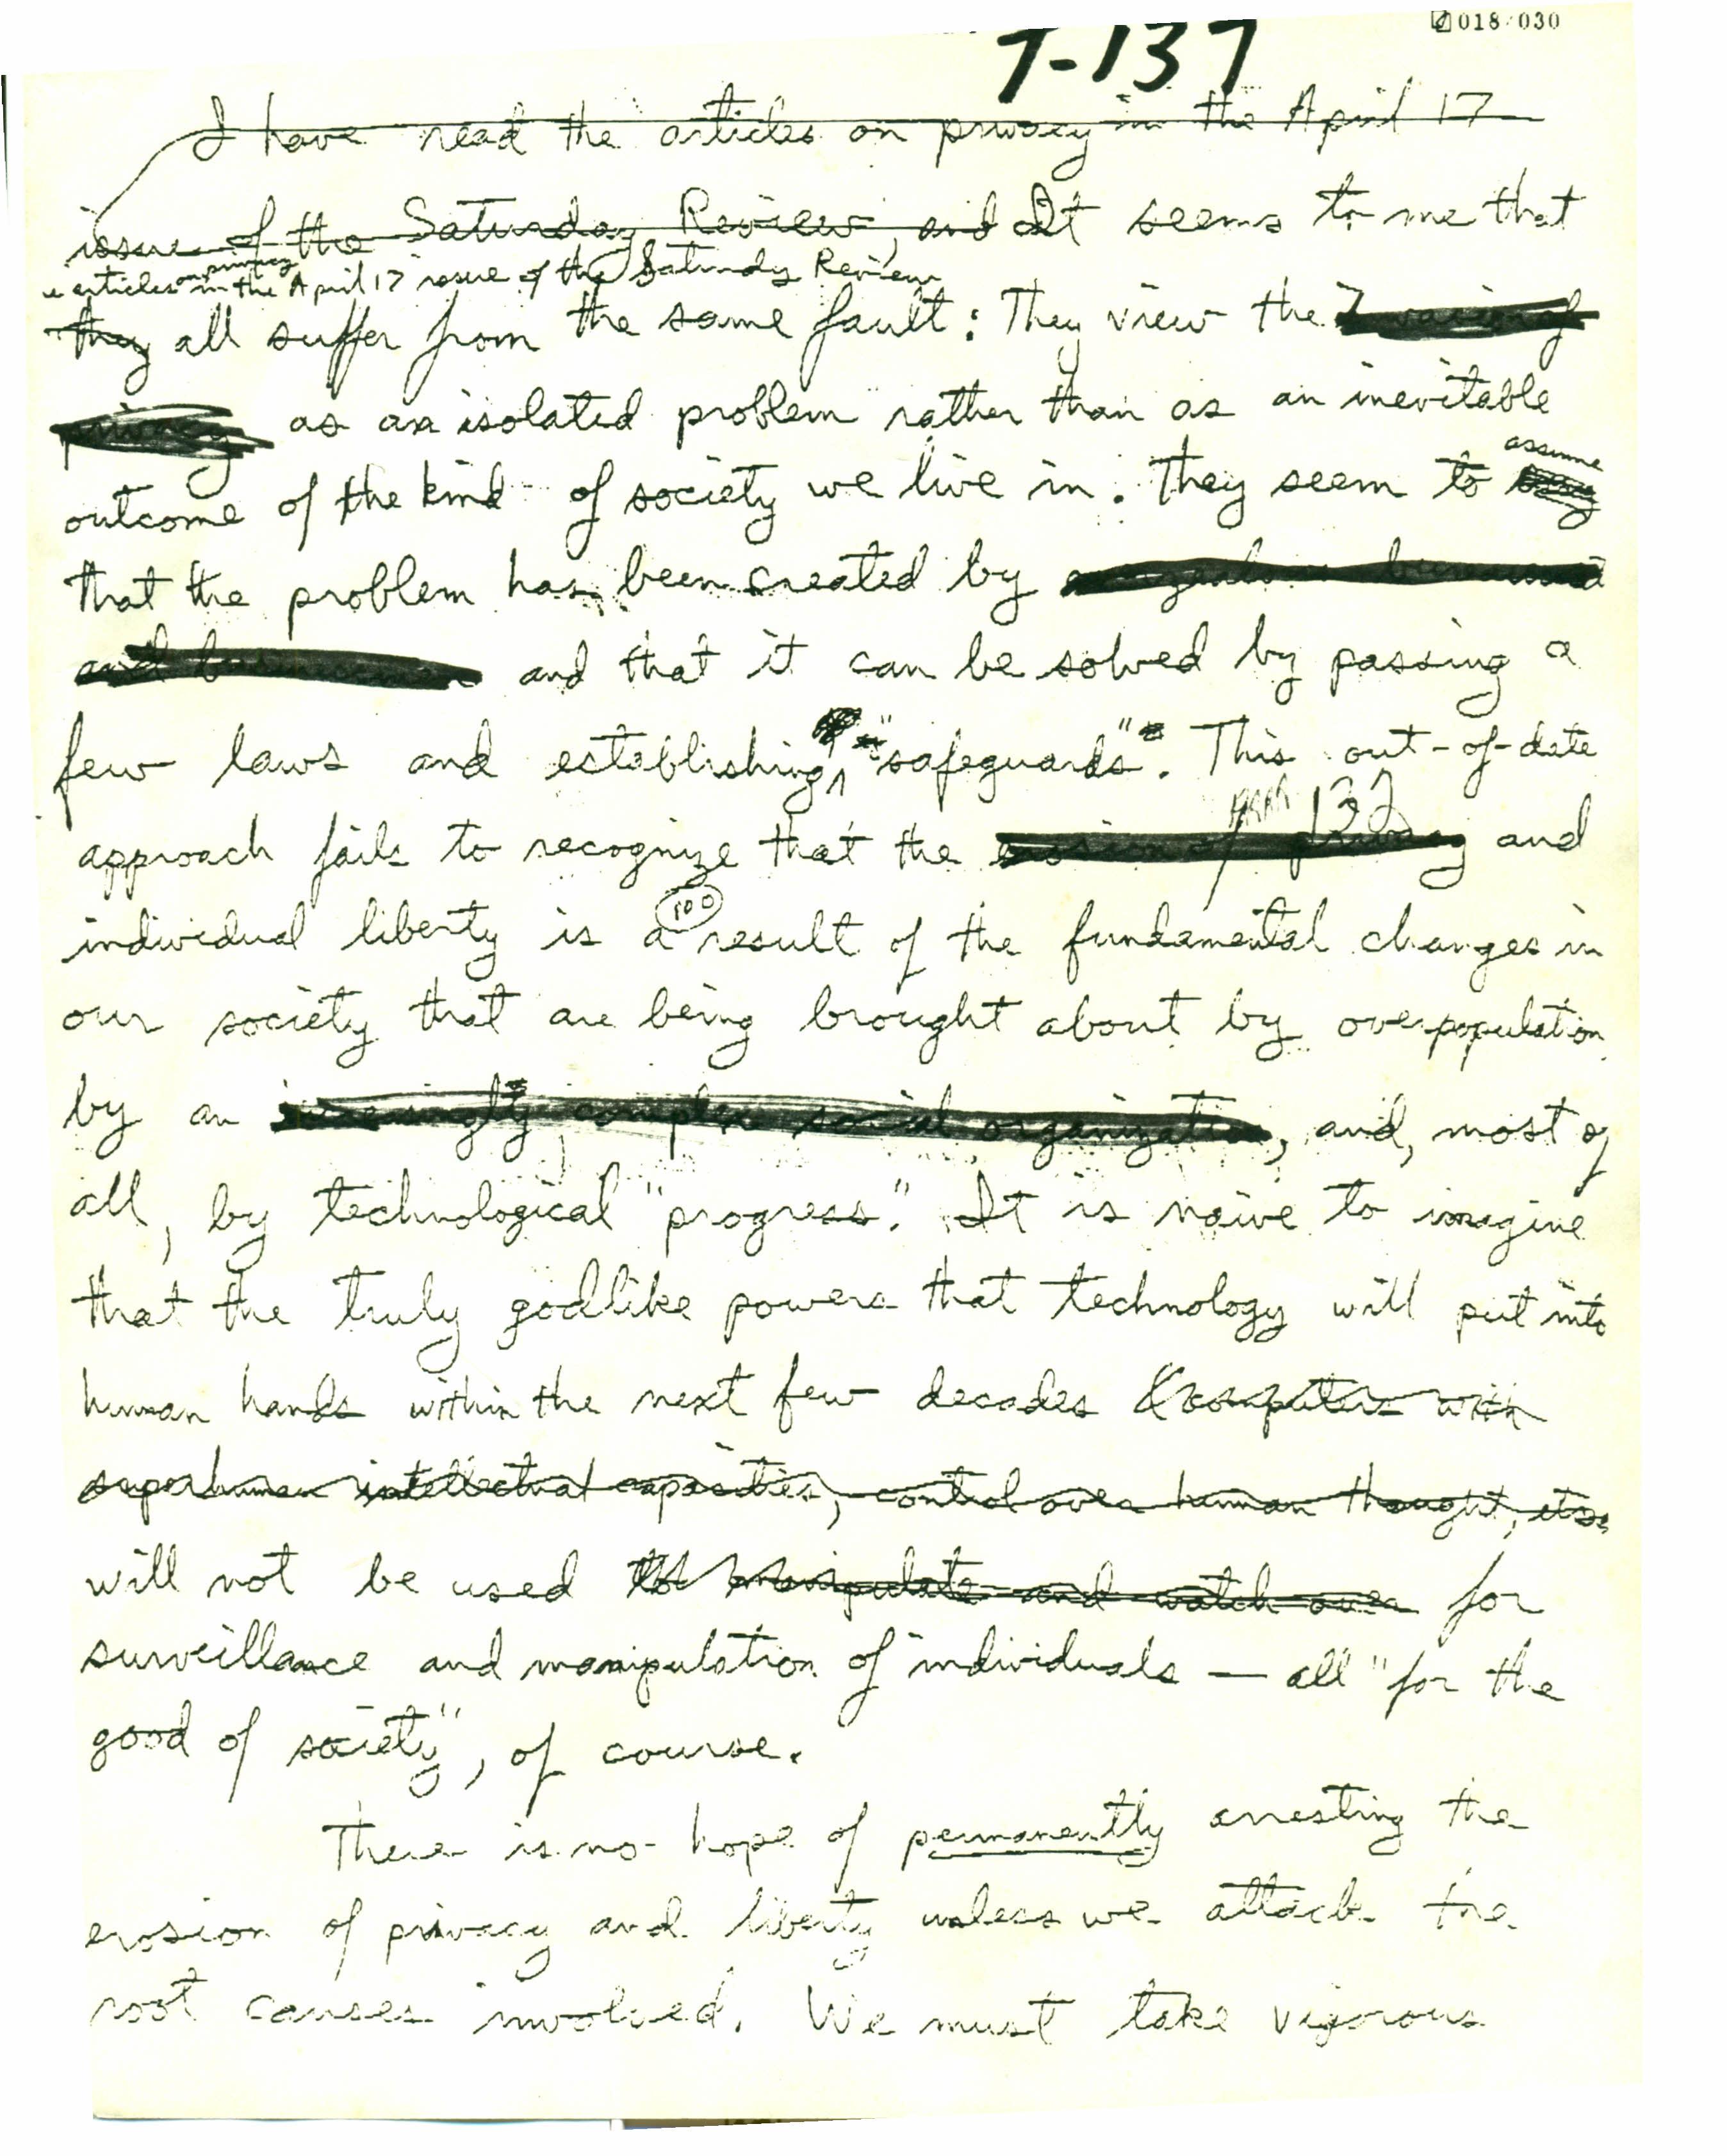 018/030
T-137
I have read the articles on privacy in the April 17
issue of the Saturday Review, and It seems to me that
articles on privacy in the April 17 issue of the Saturday Review
they all suffer from the same fault: They view the
privacy as an isolated problem rather than as an inevitable
assume
outcome of the kind of society we live in. They seem to
that the problem has been created by
and and that it can be solved by passing a
few laws and establishing "safeguards". This out-of-date
132
approach fails to recognize that the erosion of privacy and
100
individual liberty is a result of the fundamental changes in
our society that are being brought about by overpopulation
by an increasingly complex social organization, and, most of
all, by technological "progress." It is naive to imagine
that the truly godlike powers that technology will put into
human hands within the next few decades (computers with
superhuman intellectual capacities, control over human thought, etc.
will not be used to manipulate and watch over for
surveillance and manipulation of individuals — all "for the
good of society", of course.
There is no hope of permanently arresting the
erosion of privacy and liberty unless we attack the
root causes involved. We must take vigorous